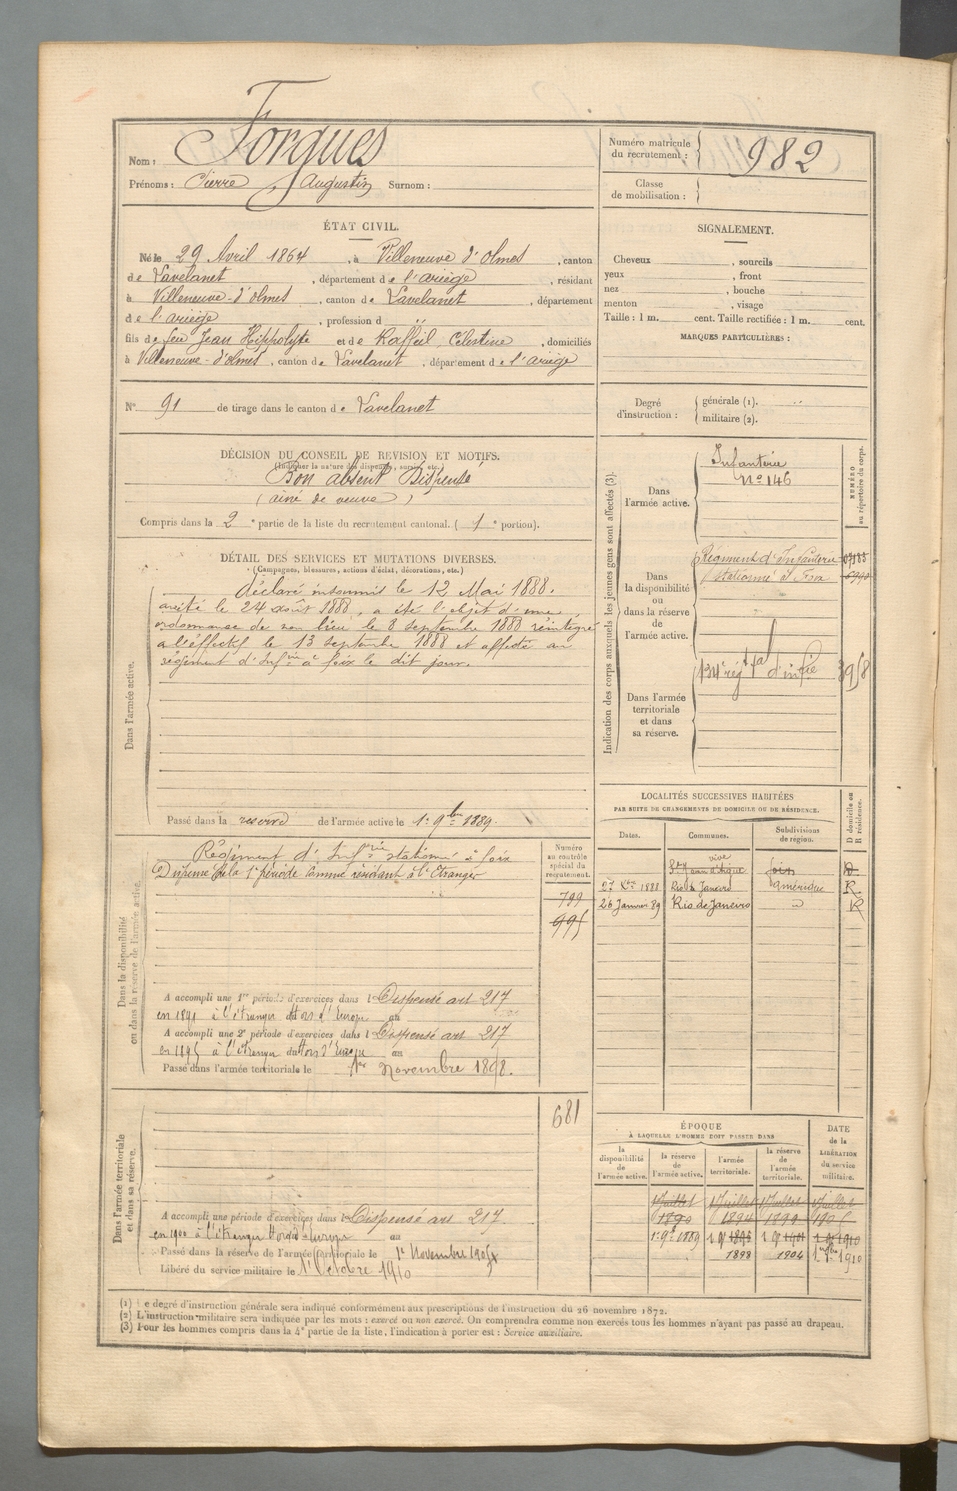 Nom : Forgues
Prénoms : Pierre, Augustin Surnom :
Numéro matricule du recrutement : 982
Classe de mobilisation :
ÉTAT CIVIL.
Né le 29 Avril 1864, à Villeneuve d'Olmes, canton
de Lavelanet, département de l'ariège, résidant
à Villeneuve-d'olmes, canton de Lavelanet, département
de l'ariège, profession d "
fils de feu Jean Hippolyte et de Raffeil, Célestine, domiciliés
à Villeneuve-d'olmes, canton de Lavelanet, départem de l'ariège
N° 91 de tirage dans le canton de Lavelanet
SIGNALEMENT.
Cheveux , sourcils
yeux , front
nez , bouche
menton , visage
Taille : 1 m. cent. Taille rectifiée : 1 m. cent.
MARQUES PARTICULIÈRES :
Degré d'instruction : générale (1). "
militaire (2).
DÉCISION DU CONSEIL DE REVISION ET MOTIFS.
(Indiquer la nature des dispenses, sursis, etc.)
Bon absent Dispensé
(ainé de veuve)
Compris dans la 2e partie de la liste du recrutement cantonal. (1e portion).
DÉTAIL DES SERVICES ET MUTATIONS DIVERSES.
(Campagnes, blessures, actions d'éclat, décorations, etc.)
Dans l'armée active.
déclaré insoumis le 12 Mai 1888.
arrêté le 24 août 1888, a été l'objet d'une
ordonnance de non lieu le 8 septembre 1888 réintégré
à l'effectif le 13 septembre 1888 et affecté au
régiment d'Infrie à foix le dit jour.
Passé dans la reserve de l'armée active le 1er 9bre 1889.
Indication des corps auxquels les jeunes gens sont affectés (3).
NUMÉRO au répertoire du corps.
Dans l'armée active.
Infanterie
No 146
Dans la disponibilité ou dans la réserve de l'armée active.
Régiment d'Infanterie
stationné à Foix
Dans l'armée territoriale et dans sa réserve.
134e régt tal d'infie 3958
LOCALITÉS SUCCESSIVES HABITÉES
PAR SUITE DE CHANGEMENTS DE DOMICILE OU DE RÉSIDENCE.
D domicile ou R résidence.
Dates. Communes. Subdivisions de région.
foix D
27 Xbre 1888 Rio de Janeiro amérique R.
26 Janvier 89 Rio de Janeiro " R
Dans la disponibilité ou dans la réserve de l'armée active.
Numéro au contrôle spécial du recrutement.
Régiment d'Infrie stationné à foix
Dispensé de la 1e période comme résidant à l'Etranger
799
995
A accompli une 1re période d'exercices dans l Dispensé art 217
en 1891 à l'étranger du Hors d'Europe au
A accompli une 2e période d'exercices dans l Dispensé art 217
en 1895 à l'étranger du Hors d'Europe au
Passé dans l'armée territoriale le 1er Novembre 1898.
Dans l'armée territoriale et dans sa réserve.
681
A accompli une période d'exercices dans l Dispensé art 217.
en 1900 à l'étranger Hors d'Europe au
Passé dans la réserve de l'armée territoriale le 1er Novembre 1904
Libéré du service militaire le 1er Octobre 1910
ÉPOQUE
À LAQUELLE L'HOMME DOIT PASSER DANS
la disponibilité de l'armée active.
la réserve de l'armée active.
l'armée territoriale.
la réserve de l'armée territoriale.
DATE de la LIBÉRATION du service militaire.
1 Juillet 1 Juillet 1 Juillet 1 Juillet
1890 1894 1899
1er 9bre 1889
1898 1904 1910
(1) Le degré d'instruction générale sera indiqué conformément aux prescriptions de l'instruction du 26 novembre 1872.
(2) L'instruction militaire sera indiquée par les mots : exercé ou non exercé. On comprendra comme non exercés tous les hommes n'ayant pas passé au drapeau.
(3) Pour les hommes compris dans la 4e partie de la liste, l'indication à porter est : Service auxiliaire.